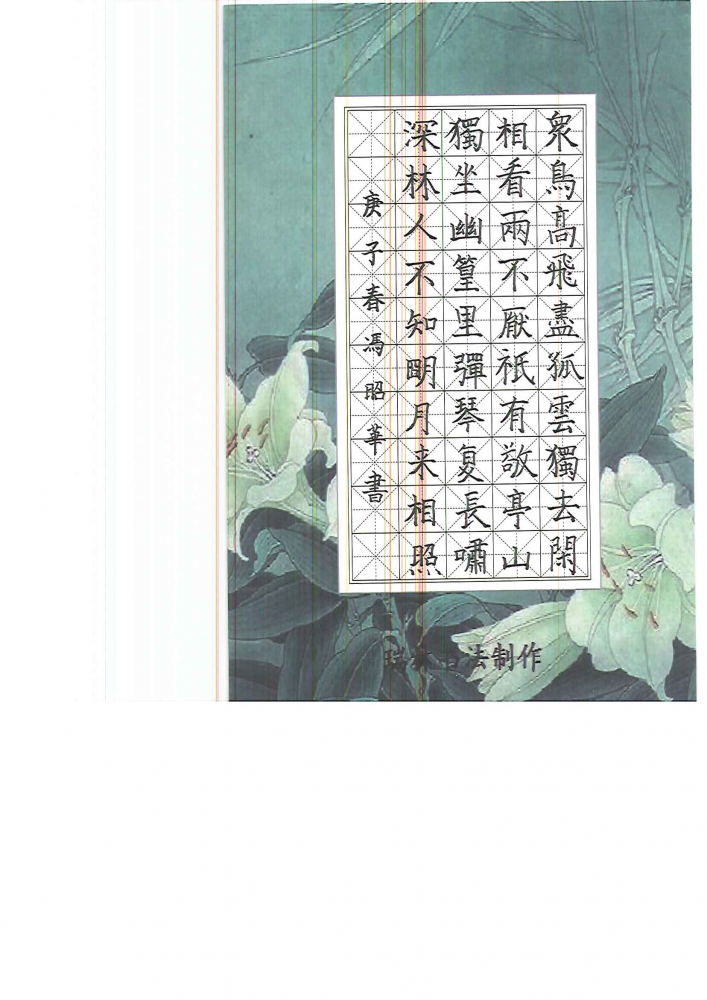 衆鳥高飛盡孤雲獨去閑
相看兩不厭衹有敬亭山
獨坐幽篁里彈琴复長嘯
深林人不知朙月来相照
庚子春馮昭華書
法制作